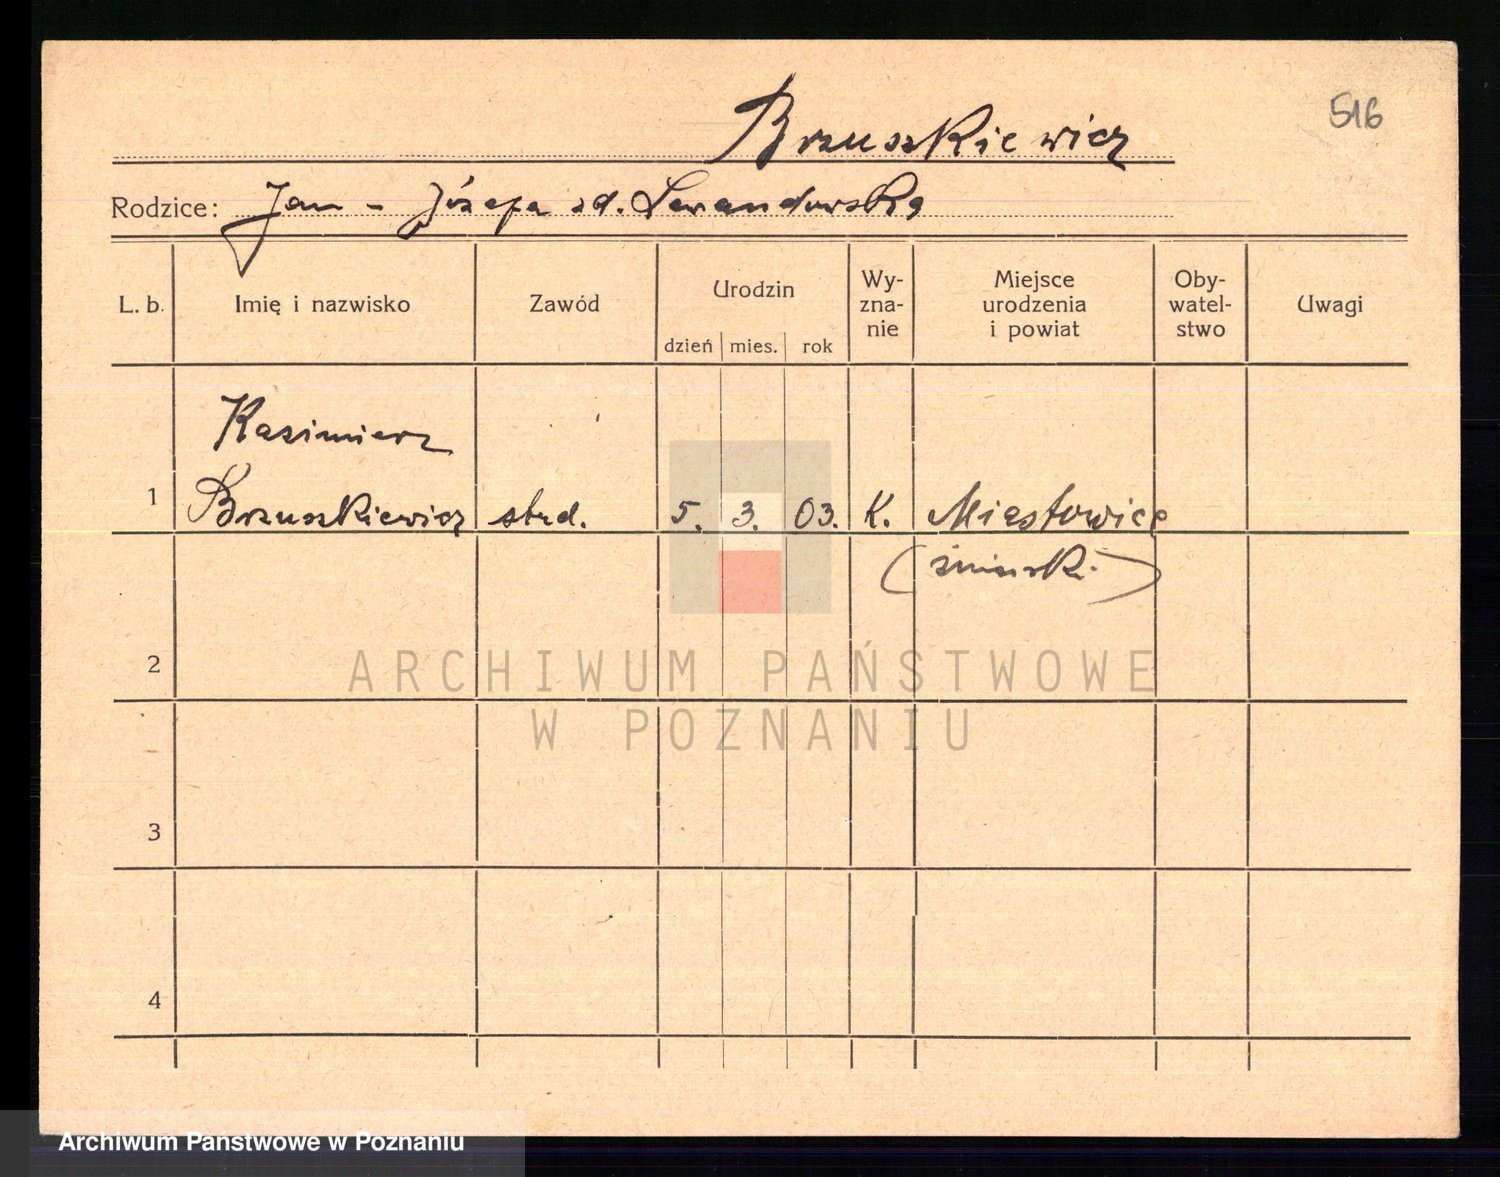 516
Brzuszkiewicz
Rodzice: Jan - Józefa zd. Lewandowska
L. b. Imię i nazwisko Zawód Urodzin Wy-zna-nie Miejsce urodzenia i powiat Oby-watel-stwo Uwagi
dzień mies. rok
Kazimierz
1 Brzuszkiewicz 5. 3. 03. K. Miastowice
(żniński.)
2
3
4
ARCHIWUM PAŃSTWOWE
W POZNANIU
Archiwum Państwowe w Poznaniu